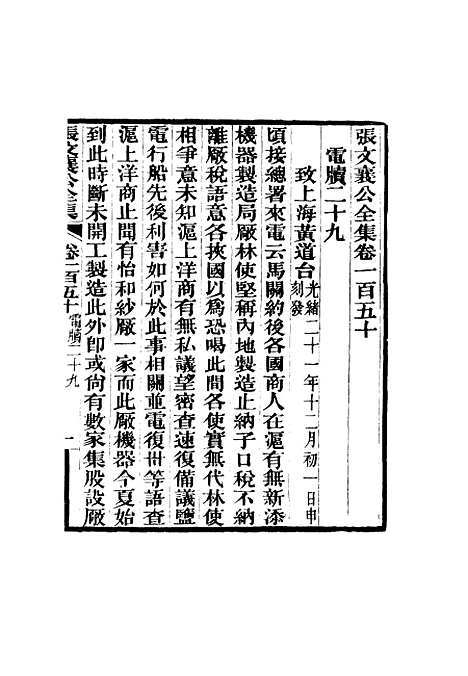 張文襄公全集卷一百五十
電牘二十九
致上海黃道台光緒二十一年十二月初一日申刻發
頃接總署來電云馬關約後各國商人在滬有無新添
機器製造局厰林使堅稱內地製造止納子口稅不納
離厰稅語意各挾國以為恐喝此間各使實無代林使
相爭意未知滬上洋商有無私議望密查速復備議鹽
電行船先後利害如何於此事相關並電復卅等語查
滬上洋商止聞有怡和紗厰一家而此厰機器今夏始
到此時斷未開工製造此外卽或尙有數家集股設厰
張文襄公全集
卷一百五十
電牘二十九
一